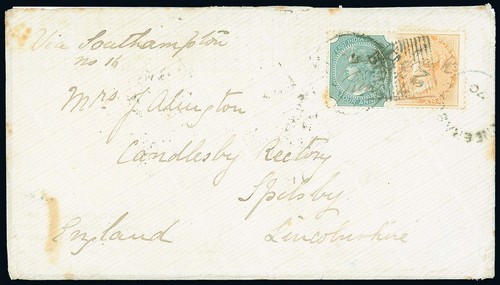 Via Southampton
no 16
Mrs J Alington
Candlesby Rectory
Spilsby
England Lincolnshire